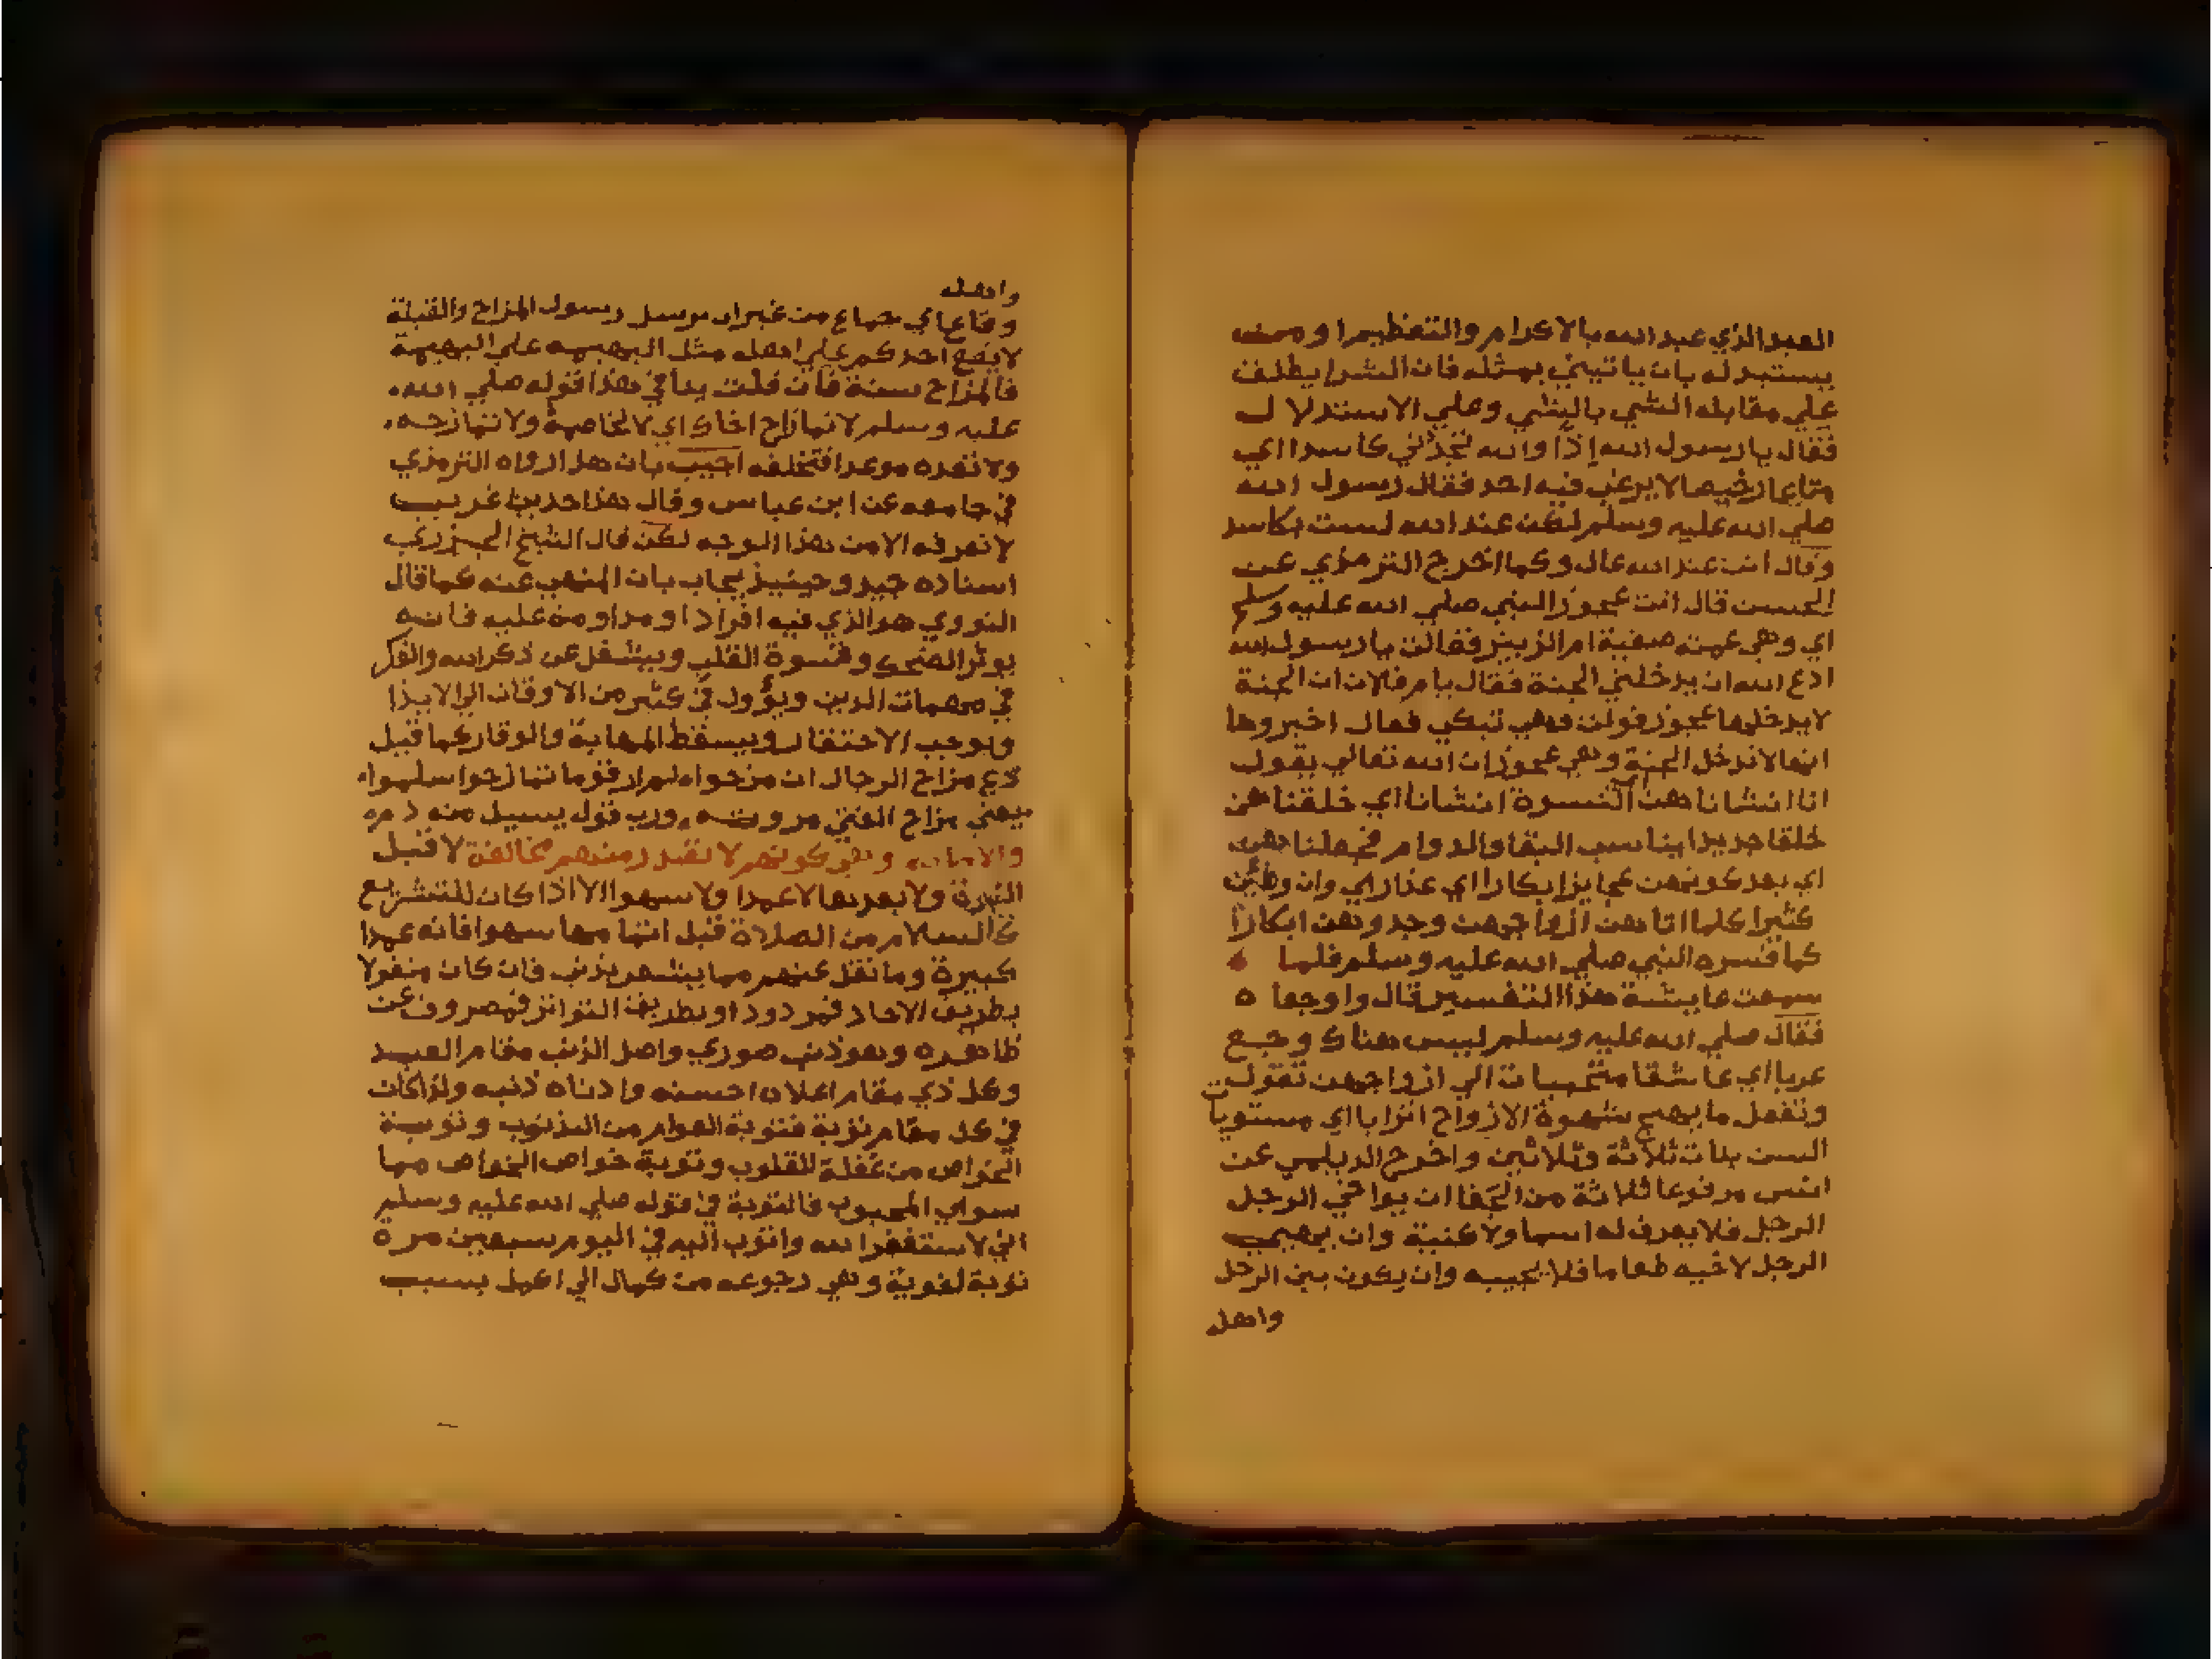 العبد الذي عبد الله بالاكرام والتعظيم او ممن
يستبدله بان ياتيني بمثله فان الشرا يطلق
علي مقابلة الشي بالشي وعلي الاستدلال
فقال يا رسول الله إذًا والله تجدني كاسدا اي
متاعا رخيصا لا يرغب فيه احد فقال رسول الله
صلي الله عليه وسلم لكن عند الله لست بكاسد
وقال انت عند الله غال وكما اخرج الترمذي عن
الحسن قال اتت عجوز النبي صلي الله عليه وسلم
اي وهي عمته صفية ام الزبير فقالت يا رسول الله
ادع الله ان يدخلني الجنة فقال يا ام فلان ان الجنة
لا يدخلها عجوز فولت وهي تبكي فقال اخبروها
انها لا تدخل الجنة وهي عجوز ان الله تعالي يقول
انا انشاناهن اي النسوة انشانا اي خلقناهن
خلقا جديدا يناسب البقا والدوام فجعلناهن
اي بعد كونهن عجايز ابكارا اي عذاري وان وطين
كثيرا كلما اتاهن ازواجهن وجدوهن ابكارا
كما فسره النبي صلي الله عليه وسلم فلما
سمعت عايشة هذا التفسير قال واوجعا ه
فقال صلي الله عليه وسلم ليس هناك وجع
عربا اي عاشقا متحببات الي ازواجهن تقولت
وتفعل ما يهيج شهوة الازواج اترابا اي مستويات
السن بنات ثلاثة وثلاثين واخرج الديلمي عن
انس مرفوعا ثلاثة من الجفا ان يواخي الرجل
الرجل فلا يعرف له اسما ولا كنية وان يهيي
الرجل لاخيه طعاما فلا يجيبه وان يكون بين الرجل
واهله
واهله
وقاع اي جماع من غير ان يرسل رسول المزاح والقبلة
لا يقع احدكم علي اهله مثل البهيمه علي البهيمة
فالمزاح سنة فان قلت ينافي هذا قوله صلي الله
عليه وسلم لا تمازح اخاك اي لا تخاصمه ولا تمازحه
ولا تعده موعدا فتخلفه اجيب بان هذا رواه الترمذي
في جامعه عن ابن عباس وقال هذا حديث غريب
لا نعرفه الا من هذا الوجه لكن قال الشيخ الجزري
اسناده جيد وحينيذ يجاب بان المنهي عنه كما قال
النووي هو الذي فيه افراد او مداومة عليه فانه
يوثر الضحك وقسوة القلب ويشغل عن ذكر الله والفكر
في مهمات الدين ويؤول في كثير من الاوقات الي الايذا
ويوجب الاحتقار ويسقط المهابة والوقار كما قيل
دع مزاح الرجال ان مزحوا لم ار قوما تمازحوا سلموا
يفني مزاح الفتي مروته ورب قول يسيل منه دمه
والامانه وهي كونهم لا تقبل منهم مخالفة لا قبل
النبوة ولا بعدها لا عمدا ولا سهوا الا اذا كان للتشريع
كالسلام من الصلاة قبل اتمامها سهوا فانه عمدا
كبيرة وما نقل عنهم مما يشعر بذنب فان كان منقولا
بطريق الاحاد فمردود او بطريق التواتر فمصروف عن
ظاهره وهو ذنب صوري واصل الذنب مقام العبد
وكل ذي مقام اعلاه احسنه وادناه ذنبه ولذا كان
في كل مقام توبة فتوبة العوام من الذنوب وتوبة
الخواص من غفلة القلوب وتوبة خواص الخواص مما
سوي المحبوب فالتوبة في قوله صلي الله عليه وسلم
اني لاستغفر الله واتوب اليه في اليوم سبعين مرة
توبة لغوية وهي رجوعه من كمال الي اكمل بسبب